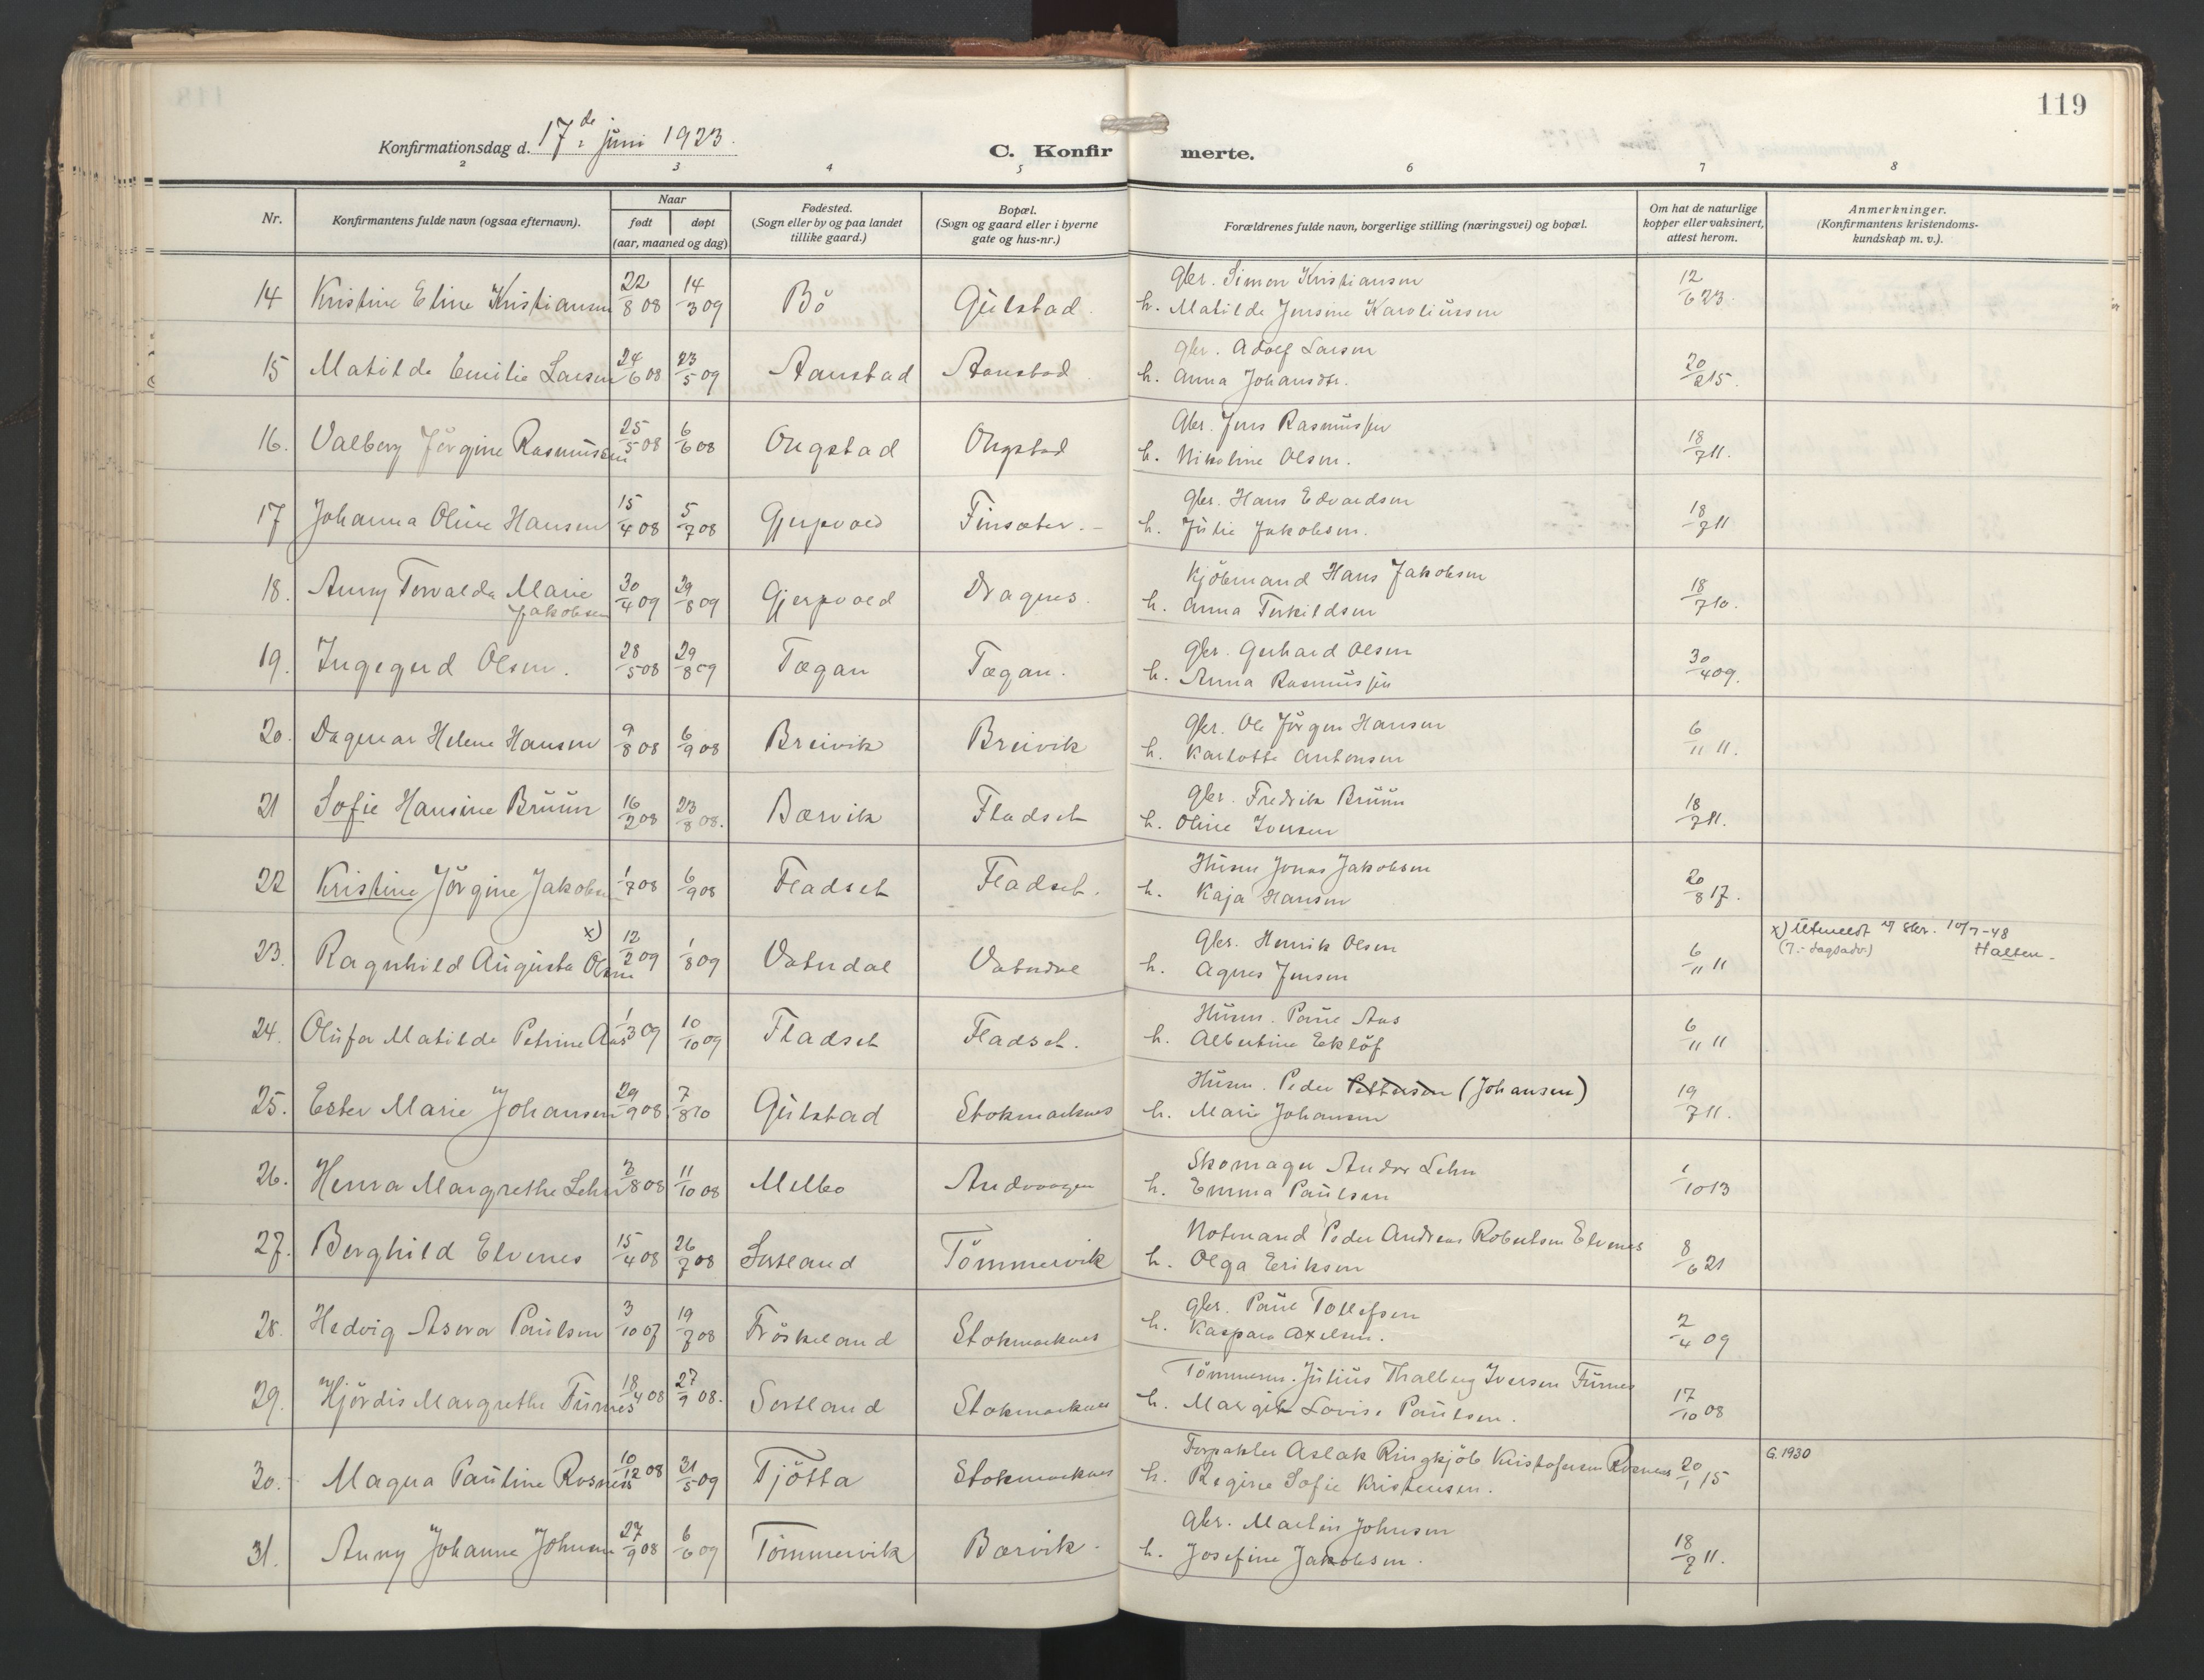 119
Konfirmationsdag d. 17de juni 1923.
C. Konfirmerte.
2 3 4 5 6 7 8
Nr.
Konfirmantens fulde navn (ogsaa efternavn).
Naar
født
døpt
(aar, maaned og dag)
Fødested.
(Sogn eller by og paa landet
tillike gaard.)
Bopæl.
(Sogn og gaard eller i byerne
gate og hus-nr.)
Forældrenes fulde navn, borgerlige stilling (næringsvei) og bopæl.
Om hat de naturlige
kopper eller vaksinert,
attest herom.
Anmerkninger.
(Konfirmantens kristendoms-
kundskap m. v.).
14 Kristine Eline Kristiansen 22/8 08 14/3 09 Bö Gulstad. Gbr. Simon Kristiansen 12/6 23.
h. Matilde Jensine Karoliussen
15 Matilde Emilie Larsen 24/6 08 23/5 09 Aanstad Aanstad gbr. Adolf Larsen 20/2 15.
h. Anna Johansdtr.
16. Valborg Jörgine Rasmussen 25/5 08 6/6 08 Ongstad Ongstad Gbr. Jens Rasmussen 18/7 11.
h. Nikoline Olsen.
17 Johanna Oline Hansen 15/4 08 5/7 08 Gjerpvold Finsæter. gbr. Hans Edvardsen 18/7 11
h. Julie Jakobsen.
18. Anny Torvalda Marie 30/4 09 29/8 09 Gjerpvold Dragnes. Kjöbmand Hans Jakobsen 18/7 10.
Jakobsen h. Anna Terkildsen
19. Ingegerd Olsen. 28/5 08 29/8 09 Tægan Tægan. gbr. Gerhard Olsen 30/4 09.
h. Anna Rasmussen
20. Dagmar Helene Hansen 9/8 08 6/9 08 Breivik Breivik gbr. Ole Jörgen Hansen 6/11 11.
h. Karlotte Antonsen
21 Sofie Hansine Bruun 16/2 08 23/8 08. Bærvik Fladset gbr. Fredrik Bruun 18/7 11.
h. Oline Iversen
22 Kristine Jörgine Jakobsen 1/7 08 6/9 08 Fladset Fladset. Husm Jonas Jakobsen 20/8 17.
h. Kaja Hansen
23. Ragnhild Augusta Olsen x) 12/2 09 1/8 09 Vatndal Vatndal gbr. Henrik Olsen 6/11 11 x) Utmeldt 10/7-48
h. Agnes Jensen (7.-dagsadv.) Halsen.
24. Olufa Matilde Petrine Aas 1/3 09 10/10 09 Fladset Fladset. Husm. Paul Aas 6/11 11
h. Albertine Eklöf
25. Ester Marie Johansen 29/9 08 7/8 10 Gulstad Stokmarknes Husm. Peder Pettersen (Johansen) 19/7 11.
h. Marie Johansen
26. Henra Margrethe Lehn 2/8 08 11/10 08 Melbo Andvaagen Skomager Andor Lehn 1/10 13
h. Emma Paulsen
27. Borghild Elvenes 15/4 08 26/7 08 Sortland Tömmervik Notmand Peder Andreas Robertsen Elvenes 8/6 21
h. Olga Eriksen
28. Hedvig Asora Paulsen 3/10 07 19/7 08 Fröskeland Stokmarknes gbr. Paul Tollefsen 2/4 09
h. Kaspara Axelsen.
29. Hjördis Margrethe Furnes 18/4 08 27/9 08. Sortland Stokmarknes Tömmerm. Julius Thalberg Iversen Furnes 17/10 08
h. Margit Lovise Paulsen.
30. Magna Pauline Rosnes 10/12 08 31/5 09 Tjötta Stokmarknes Forpakter Aslak Ringkjöb Kristofersen Rosnes 20/1 15 G. 1930
h. Regine Sofie Kristensen.
31. Anny Johanne Johnsen 27/9 08 6/6 09 Tömmervik Bærvik. Gbr. Martin Johnsen 18/7 11.
h. Josefine Jakobsen.